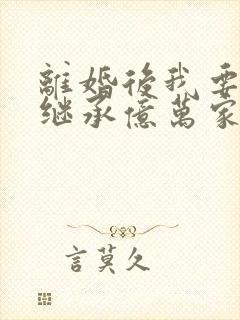 離婚後我要
继承億萬家
言莫久